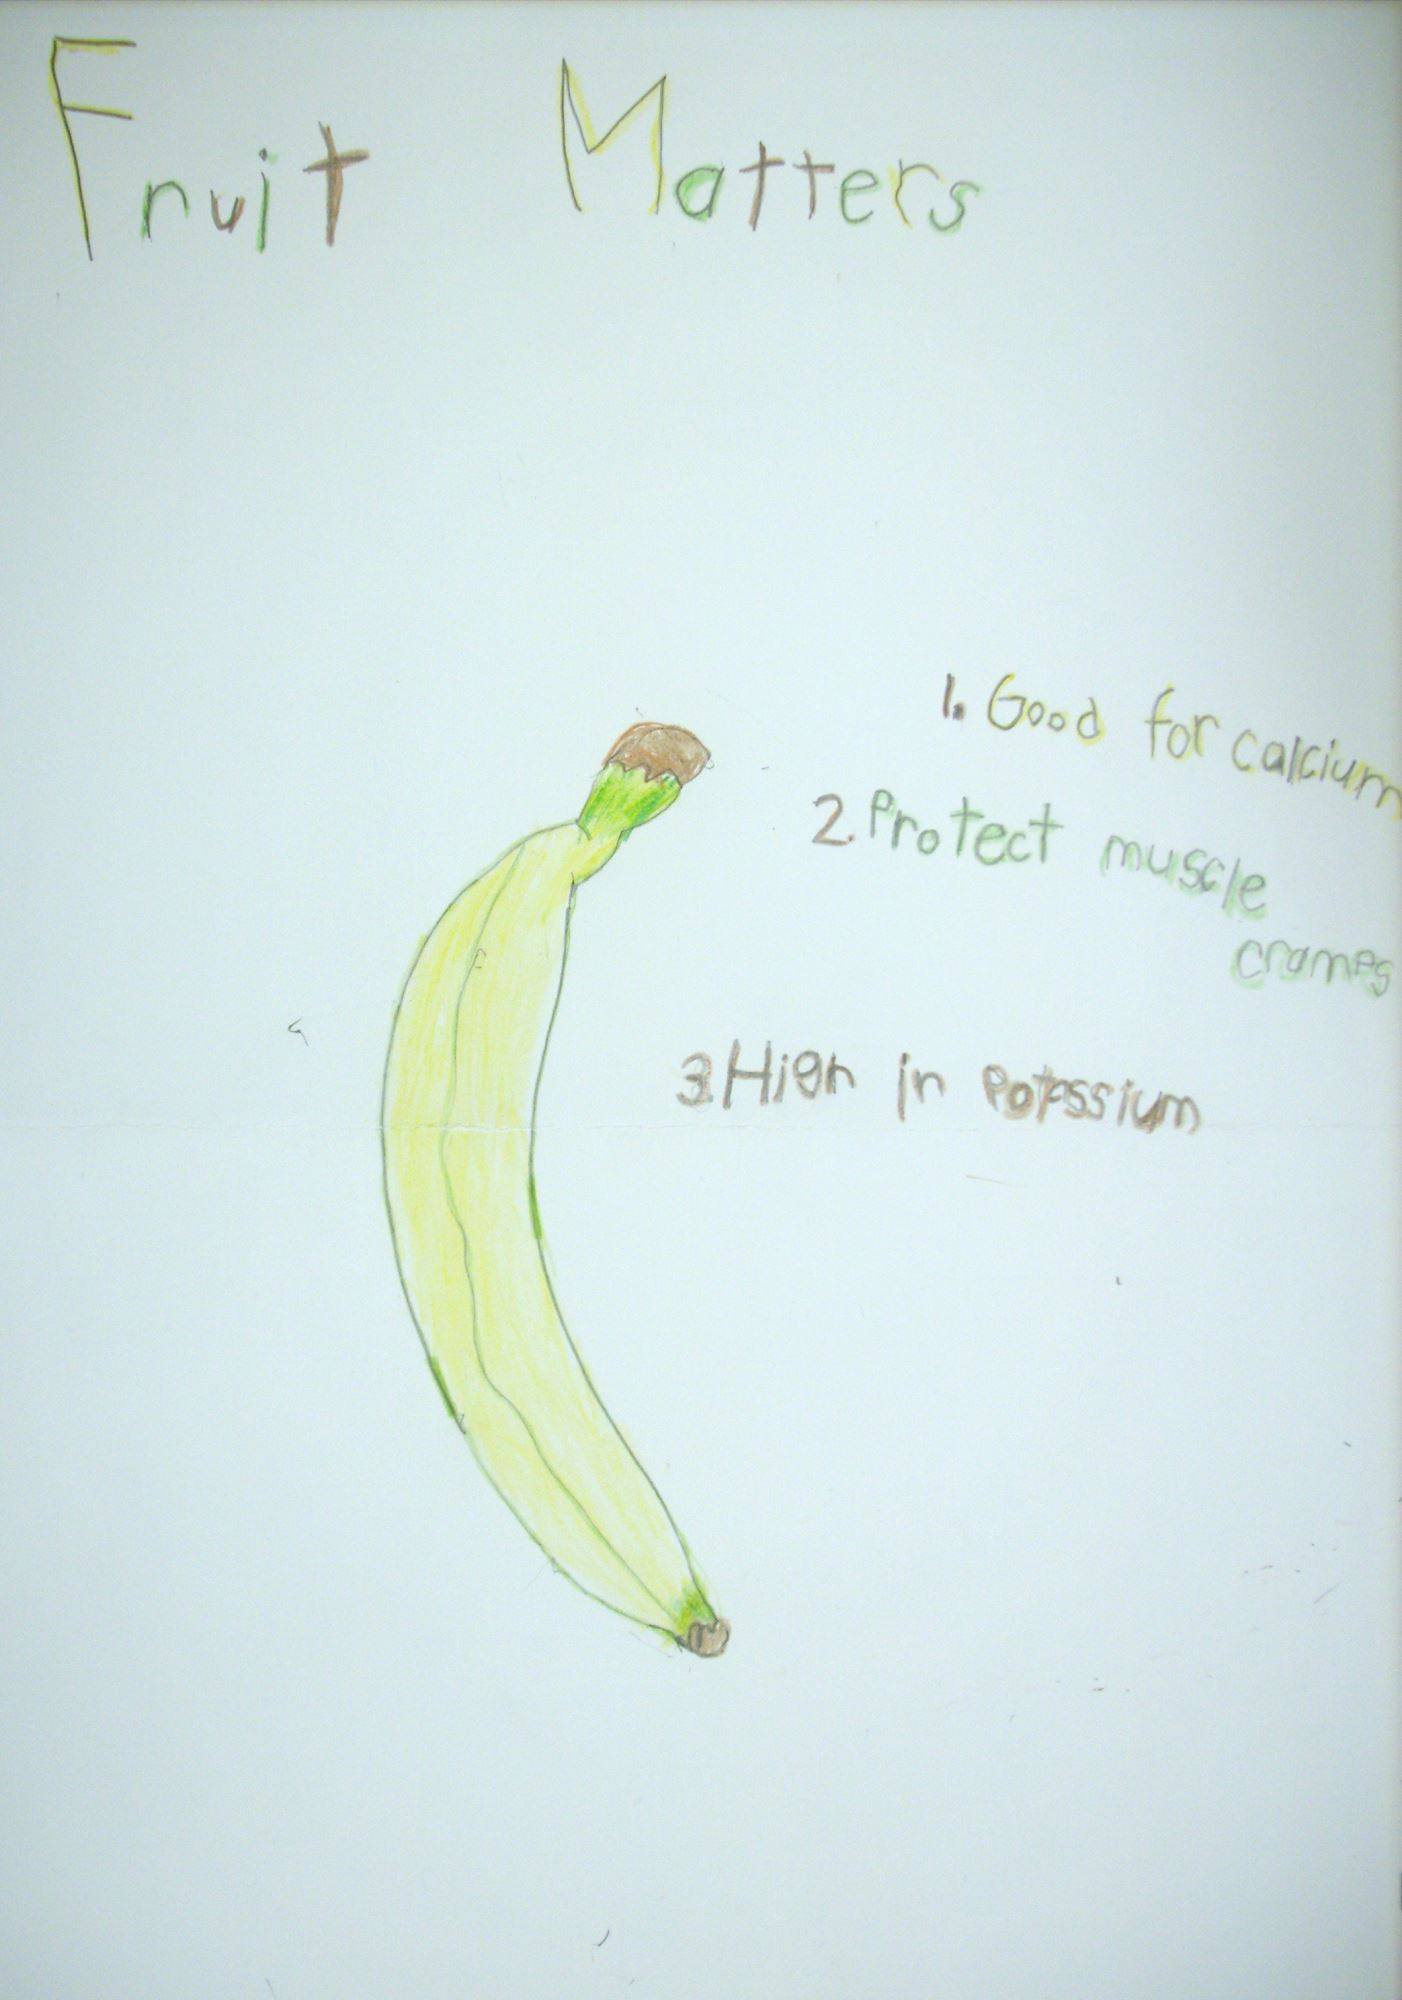 Fruit Matters
1. Good for calcium
2. Protect muscle
crames
3. High in Potassium